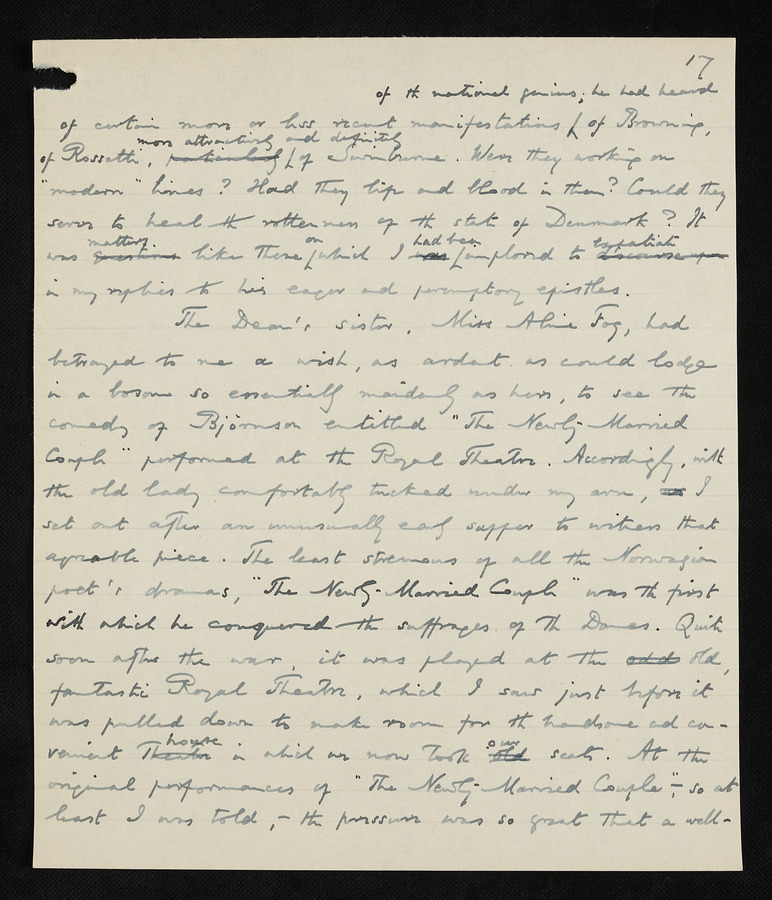 17
of th national genius; he had heard
of certain more or less recent manifestations of Browning,
more attractively and definitely
of Rossetti, particularly of Swinburne. Were they working on
"modern" lines? Had they life and blood in them? Could they
serve to heal th rottenness of th state of Denmark? It
matters on had been expatiate
was questions like these which I was implored to discourse upon
in my replies to his eager and peremptory epistles.
The Dean's sister, Miss Aline Fog, had
betrayed to me a wish, as ardent as could lodge
in a bosom so essentially maidenly as hers, to see the
comedy of Björnson entitled "The Newly-Married
Couple" performed at th Royal Theatre. Accordingly, with
the old lady comfortably tucked under my arm, I
set out after an unusually early supper to witness that
agreeable piece. The least strenuous of all the Norwegian
poet's dramas, "The Newly-Married Couple" was th first
with which he conquered th suffrages of th Danes. Quite
soon after the war, it was played at the odd old,
fantastic Royal Theatre, which I saw just before it
was pulled down to make room for th handsome and con-
house our
venient Theatre in which we now took old seats. At the
original performances of "The Newly-Married Couple",– so at
least I was told,– th pressure was so great that a well-